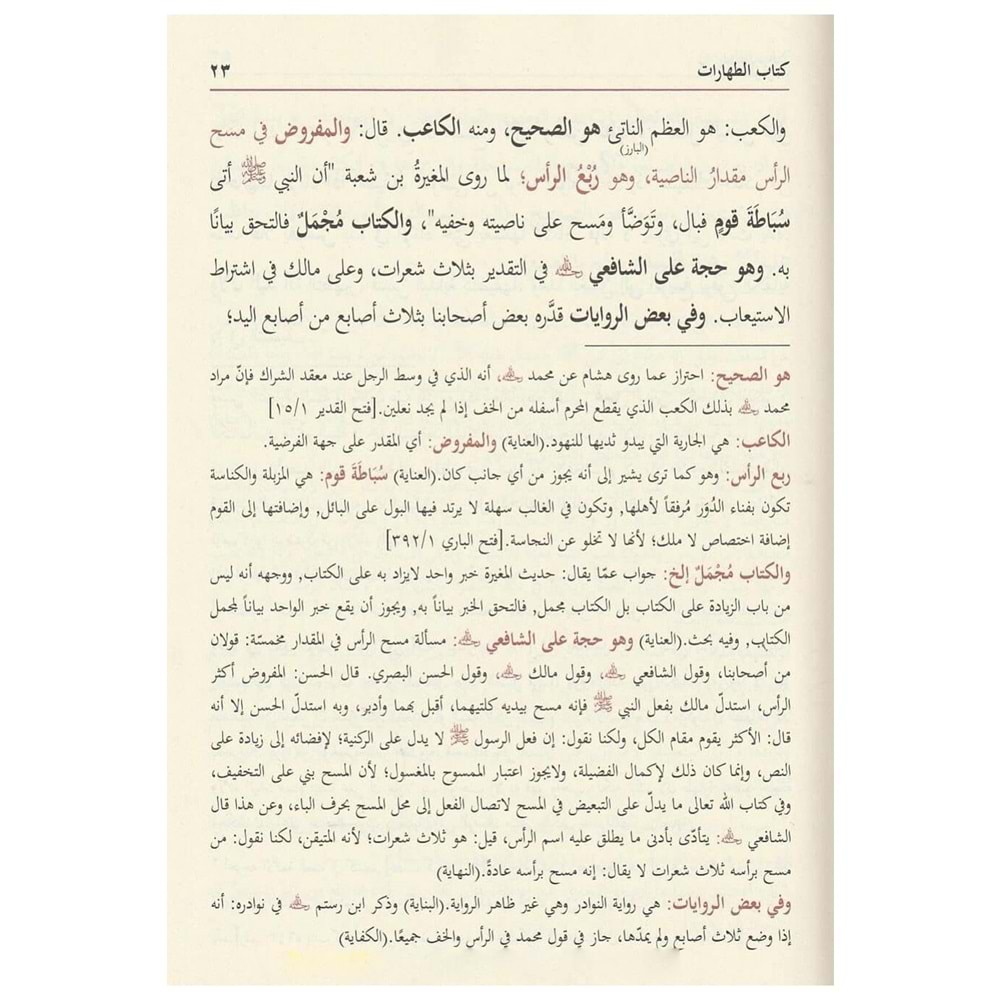 كتاب الطهارات ٢٣
والكعب: هو العظم الناتئ هو الصحيح، ومنه الكاعب. قال: والمفروض في مسح
(البارز)
الرأس مقدارُ الناصية، وهو رُبْعُ الرأس؛ لما روى المغيرةُ بن شعبة "أن النبي ﷺ أتى
سُبَاطَةَ قومٍ فبال، وتَوَضَّأ ومَسح على ناصيته وخفيه"، والكتاب مُجْمَلٌ فالتحق بيانًا
به. وهو حجة على الشافعي رحمه الله في التقدير بثلاث شعرات، وعلى مالك في اشتراط
الاستيعاب. وفي بعض الروايات قدَّره بعض أصحابنا بثلاث أصابع من أصابع اليد؛
هو الصحيح: احتراز عما روى هشام عن محمد رحمه الله، أنه الذي في وسط الرجل عند معقد الشراك فإنّ مراد
محمد رحمه الله بذلك الكعب الذي يقطع المحرم أسفله من الخف إذا لم يجد نعلين.[فتح القدير ١٥/١]
الكاعب: هي الجارية التي يبدو ثديها للنهود.(العناية) والمفروض: أي المقدر على جهة الفرضية.
ربع الرأس: وهو كما ترى يشير إلى أنه يجوز من أي جانب كان.(العناية) سُبَاطَةَ قوم: هي المزبلة والكناسة
تكون بفناء الدُوَر مُرفقاً لأهلها, وتكون في الغالب سهلة لا يرتد فيها البول على البائل, وإضافتها إلى القوم
إضافة اختصاص لا ملك؛ لأنها لا تخلو عن النجاسة.[فتح الباري ٣٩٢/١]
والكتاب مُجْمَلٌ إلخ: جواب عمّا يقال: حديث المغيرة خبر واحد لايزاد به على الكتاب, ووجهه أنه ليس
من باب الزيادة على الكتاب بل الكتاب مجمل, فالتحق الخبر بياناً به, ويجوز أن يقع خبر الواحد بياناً لمجمل
الكتاب, وفيه بحث.(العناية) وهو حجة على الشافعي رحمه الله: مسألة مسح الرأس في المقدار مخمسّة: قولان
من أصحابنا، وقول الشافعي رحمه الله، وقول مالك رحمه الله، وقول الحسن البصري. قال الحسن: المفروض أكثر
الرأس، استدلّ مالك بفعل النبي ﷺ فإنه مسح بيديه كلتيهما، أقبل بهما وأدبر، وبه استدلّ الحسن إلا أنه
قال: الأكثر يقوم مقام الكل، ولكنا نقول: إن فعل الرسول ﷺ لا يدل على الركنية؛ لإفضائه إلى زيادة على
النص، وإنما كان ذلك لإكمال الفضيلة، ولايجوز اعتبار الممسوح بالمغسول؛ لأن المسح بني على التخفيف،
وفي كتاب الله تعالى ما يدلّ على التبعيض في المسح لاتصال الفعل إلى محل المسح بحرف الباء، وعن هذا قال
الشافعي رحمه الله: يتأدّى بأدنى ما يطلق عليه اسم الرأس، قيل: هو ثلاث شعرات؛ لأنه المتيقن، لكنا نقول: من
مسح برأسه ثلاث شعرات لا يقال: إنه مسح برأسه عادةً.(النهاية)
وفي بعض الروايات: هي رواية النوادر وهي غير ظاهر الرواية.(البناية) وذكر ابن رستم رحمه الله في نوادره: أنه
إذا وضع ثلاث أصابع ولم يمدّها، جاز في قول محمد في الرأس والخف جميعًا.(الكفاية)